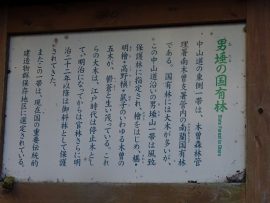 男埵の国有林
中山道の東側一帯は、木曽森林管
理署南木曽支署管内の南蘭国有林
である。国有林には大木が多いが、
この中山道沿いの男埵山一帯は風致
保護林に指定され、檜をはじめ、椹・
明檜・高野槙・鼠子のいわゆる木曽の
五木が、鬱蒼と生い茂っている。これ
らの大木は、江戸時代は停止木とし
て、明治になってからは官林さらに明
治二十二年以降は御料林として保護
されてきた。
またこの一帯は、現在国の重要伝統的
建造物群保存地区に選定されている。